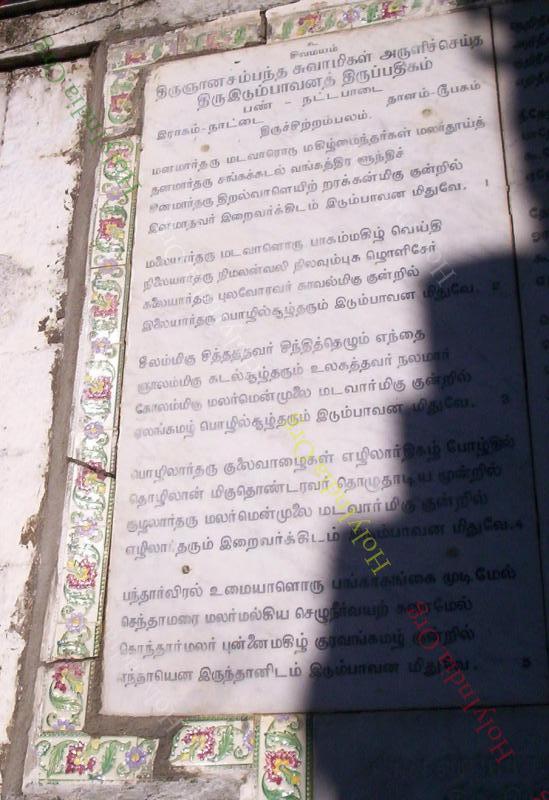 உ
சிவமயம்
திருஞானசம்பந்த சுவாமிகள் அருளிச்செய்த
திருஇடும்பாவனத் திருப்பதிகம்
பண் - நட்டபாடை
இராகம்-நாட்டை தாளம்-ரூபகம்
திருச்சிற்றம்பலம்.
மனமார்தரு மடவாரொரு மகிழ்மைந்தர்கள் மலர்தூய்த்
தனமார்தரு சங்கக்கடல் வங்கத்திர ளுந்திச்
சினமார்தரு திறல்வாளெயிற் றரக்கன்மிகு குன்றில்
இனமாதவர் இறைவர்க்கிடம் இடும்பாவன மிதுவே. 1
மலையார்தரு மடவாளொரு பாகம்மகிழ் வெய்தி
நிலையார்தரு நிமலன்வலி நிலவும்புக ழொளிசேர்
கலையார்தரு புலவோரவர் காவல்மிகு குன்றில்
இலையார்தரு பொழில்சூழ்தரும் இடும்பாவன மிதுவே. 2
சீலம்மிகு சித்தத்தவர் சிந்தித்தெழும் எந்தை
ஞாலம்மிகு கடல்சூழ்தரும் உலகத்தவர் நலமார்
கோலம்மிகு மலர்மென்முலை மடவார்மிகு குன்றில்
ஏலங்கமழ் பொழில்சூழ்தரும் இடும்பாவன மிதுவே. 3
பொழிலார்தரு குலைவாழைகள் எழிலார்திகழ் போழ்தில்
தொழிலான் மிகுதொண்டரவர் தொழுதாடிய முன்றில்
குழலார்தரு மலர்மென்முலை மடவார்மிகு குன்றில்
எழிலார்தரும் இறைவர்க்கிடம் இடும்பாவன மிதுவே.4
பந்தார்விரல் உமையாளொரு பங்காகங்கை முடிமேல்
செந்தாமரை மலர்மல்கிய செழுநீர்வயற் கரைமேல்
கொந்தார்மலர் புன்னைமகிழ் குரவங்கமழ் குன்றில்
எந்தாயென இருந்தானிடம் இடும்பாவன மிதுவே. 5
HolyIndia.Org
HolyIndia.Org
HolyIndia.Org